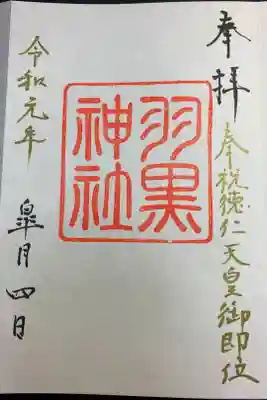 奉拝
奉祝徳仁天皇御即位
羽黒
神社
令和元年
皐月四日